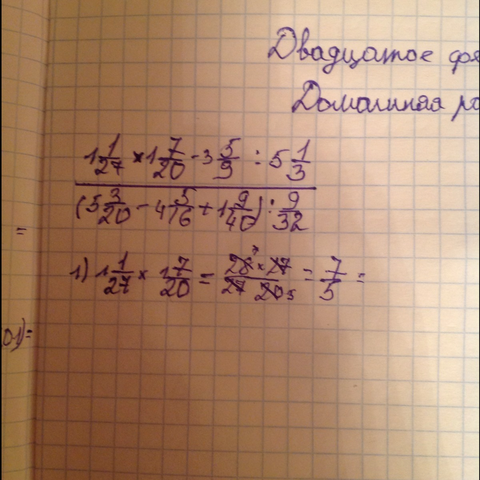 Двадцатое
Домашняя
1 1/27 × 1 7/20 - 3 5/9 : 5 1/3
(5 3/20 - 4 5/16 + 1 9/40) : 9/32
=
1) 1 1/27 × 1 7/20 = 28 × 27 / 27 20 5 = 7/5 =